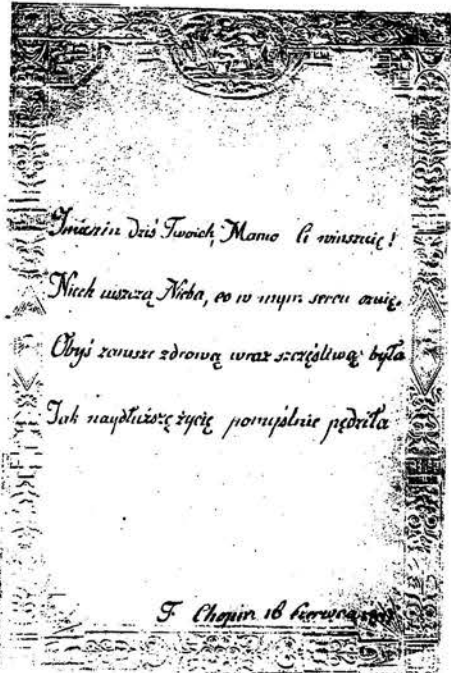 Imienin dziś Twoich, Mamo Ci winszuię!
Niech uiszczą Nieba, co w mym sercu czuię,
Obyś zawsze zdrową wraz szczęśliwą była
Jak naydłuższę życię pomyślnie pędziła
F Chopin 16 Czerwca